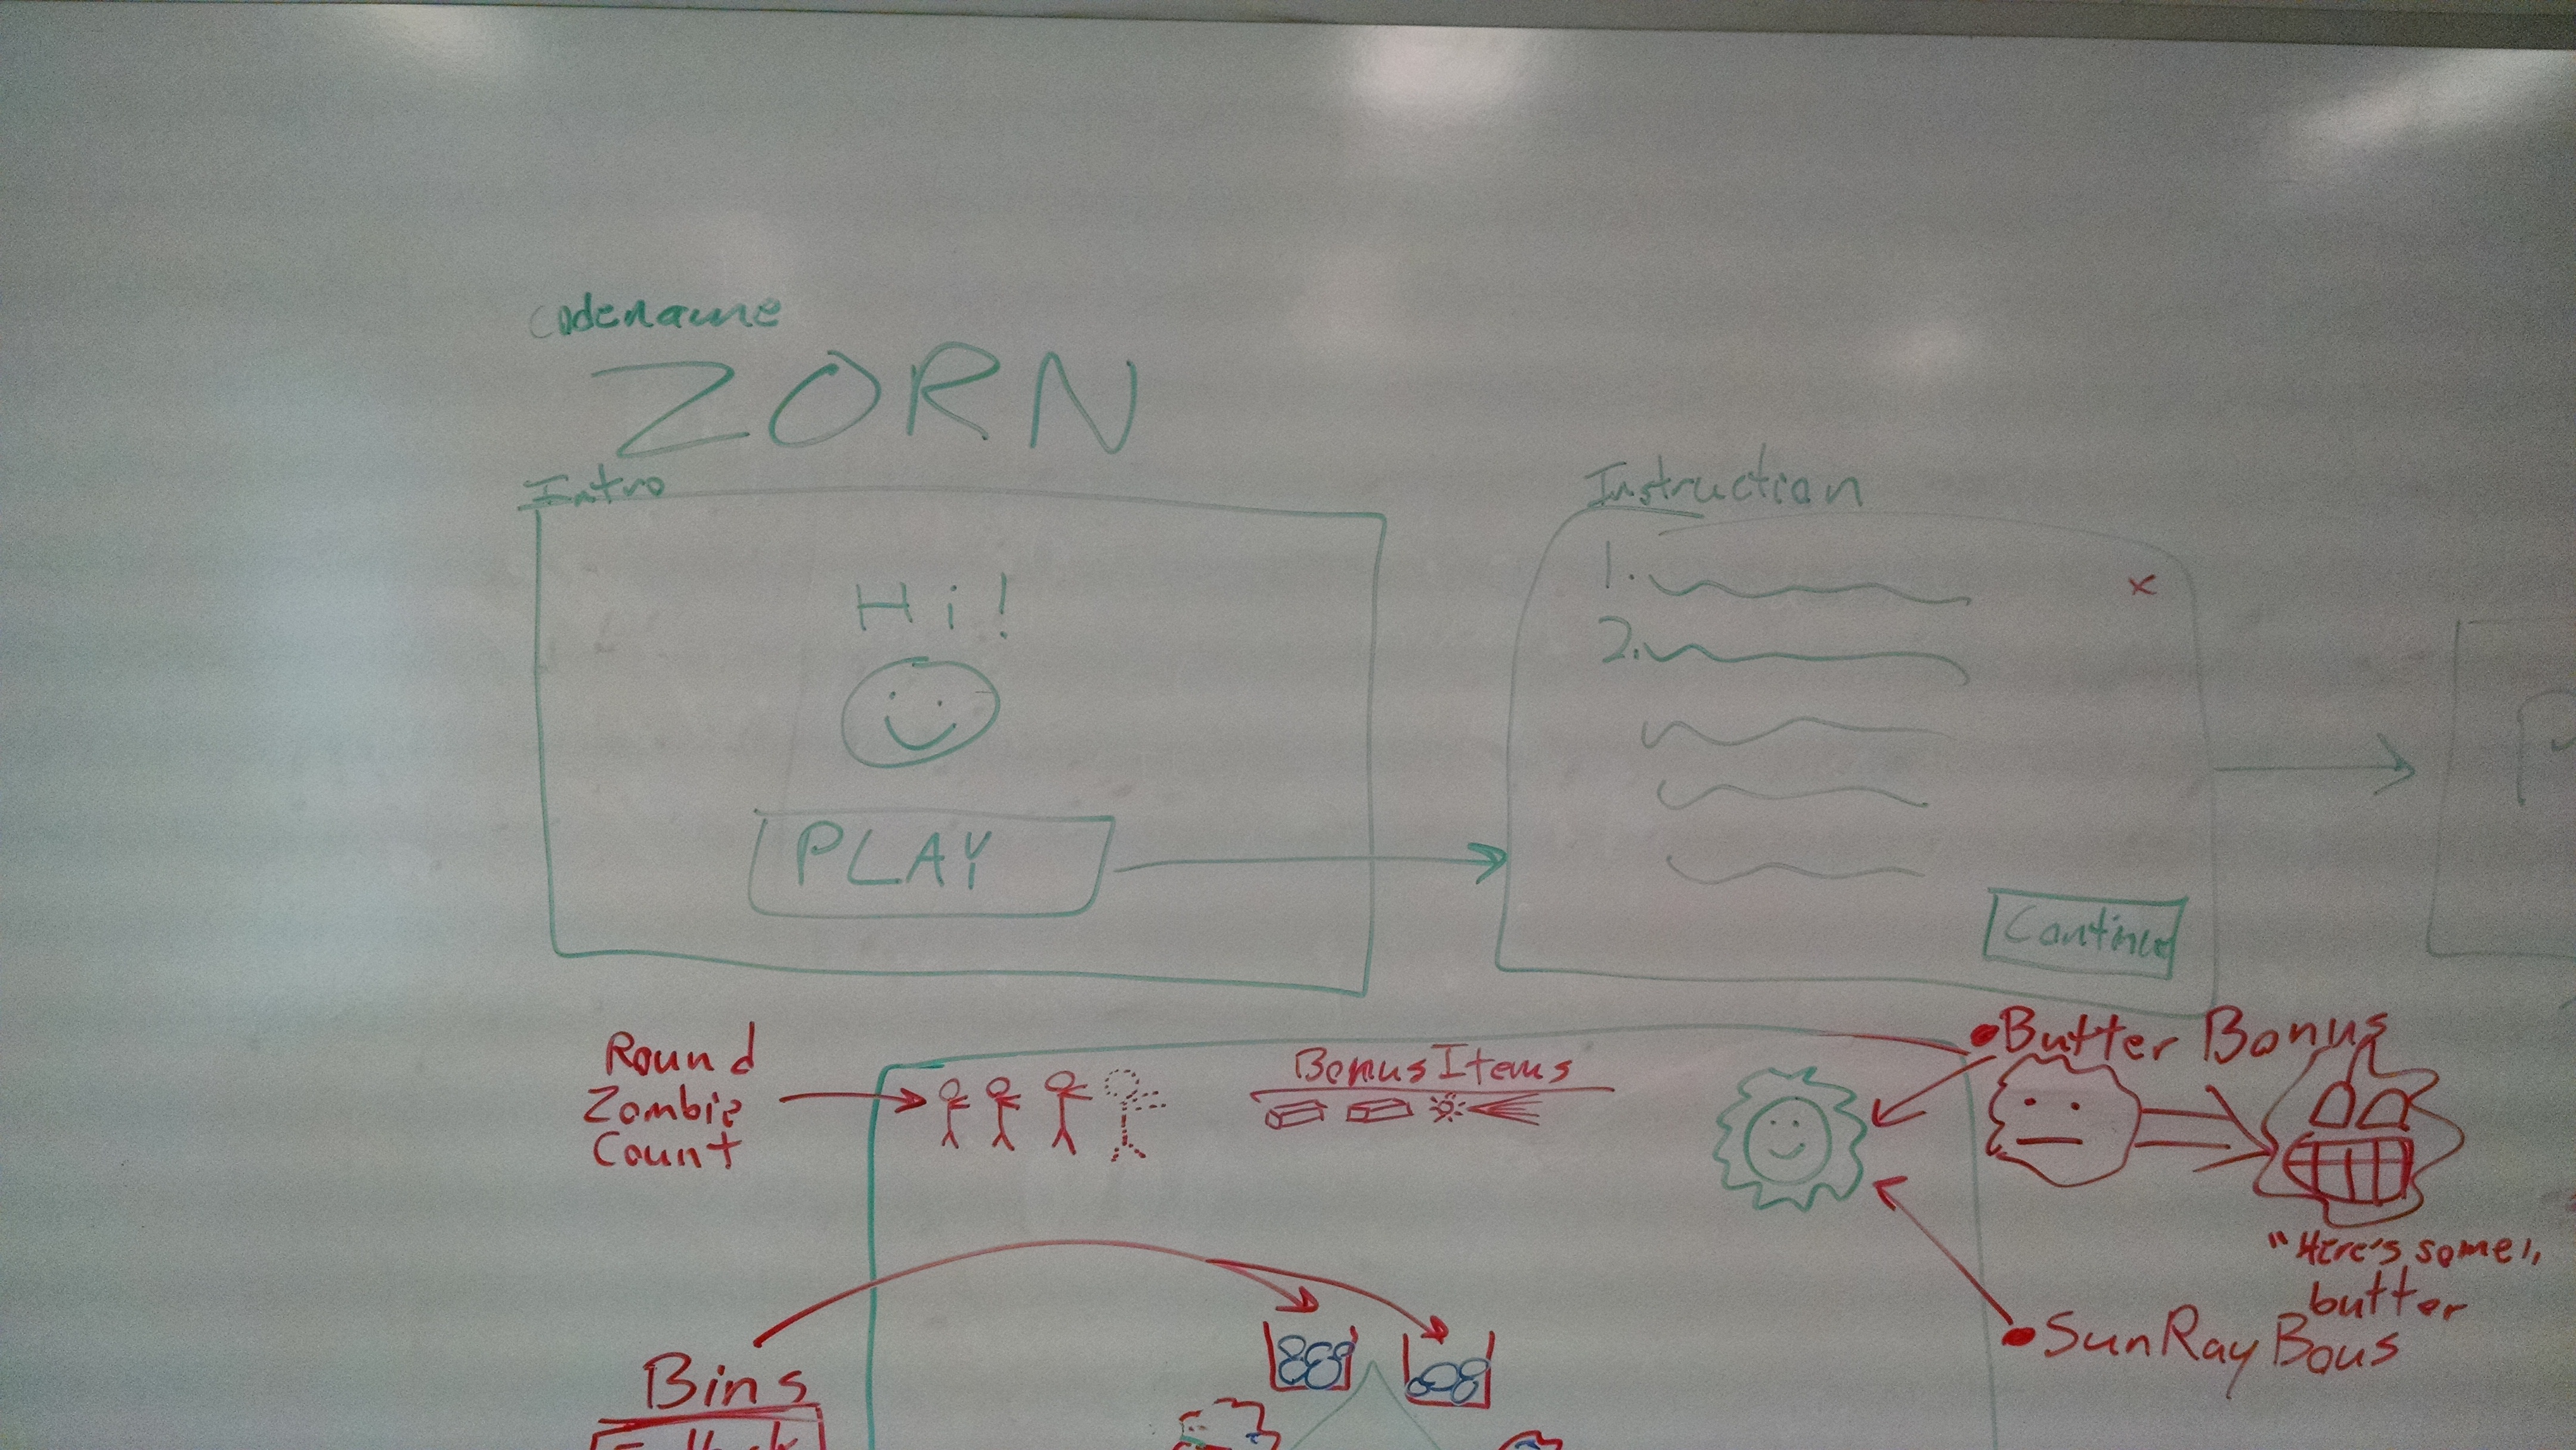 codename
ZORN
Intro
Hi!
PLAY
Instruction
1.
2.
x
Continue
Round
Zombie
Count
Bonus Items
Butter Bonus
"Here's some"
butter
SunRay Bous
Bins